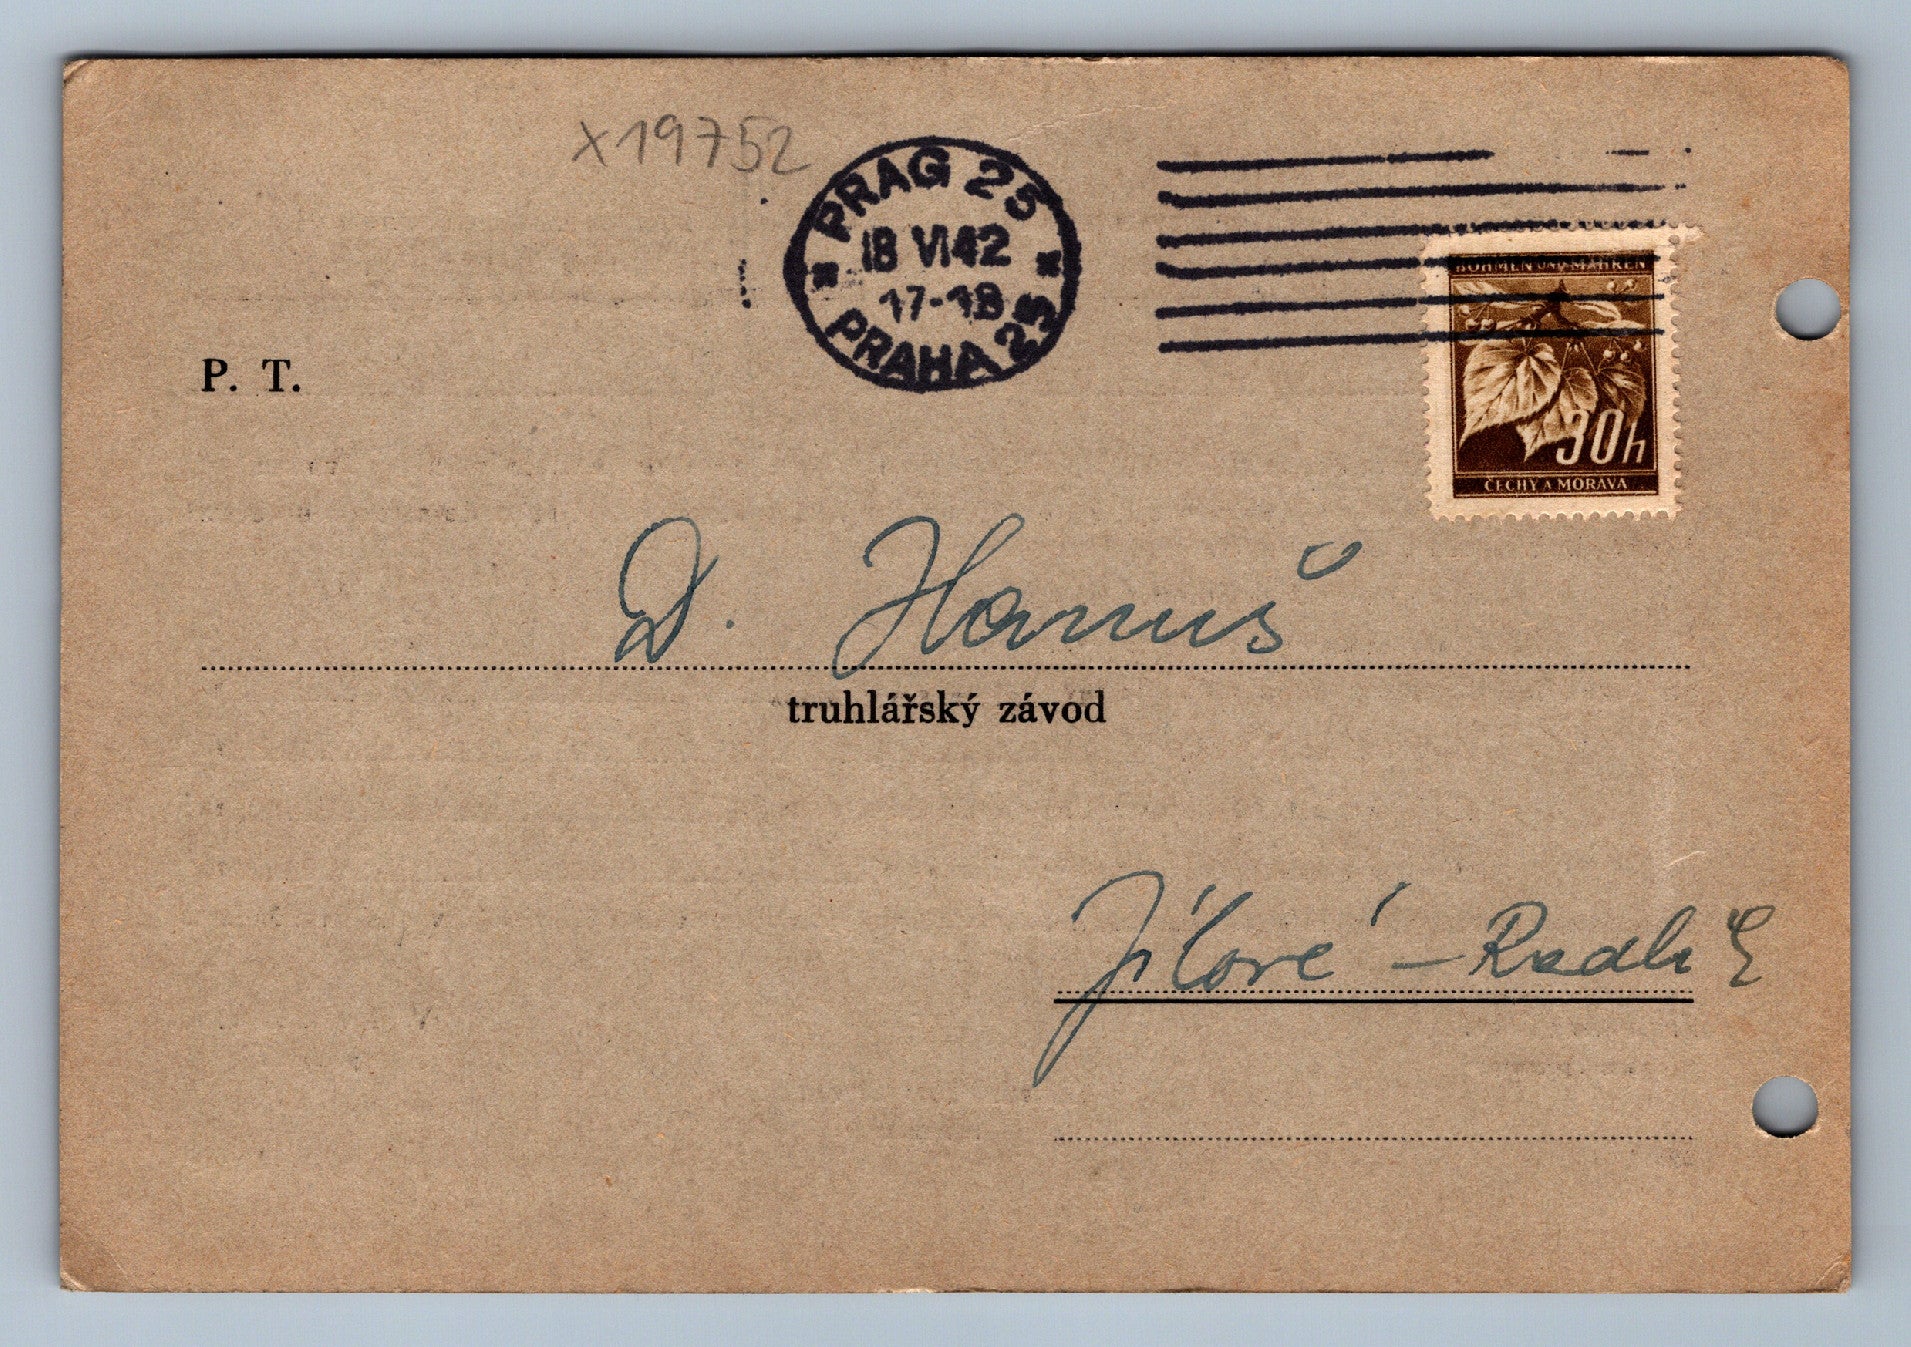 x19752
PRAG 25
18 VI 42
17-18
PRAHA 25
BÖHMEN UND MÄHREN
30h
ČECHY A MORAVA
P. T.
D. Hanuš
truhlářský závod
Jílové - Radlík